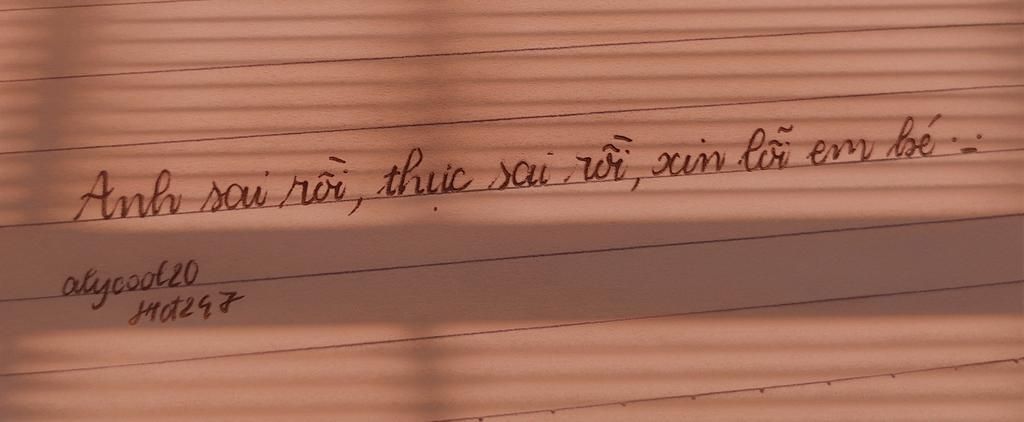 Anh sai rồi, thực sai rồi, xin lỗi em bé...